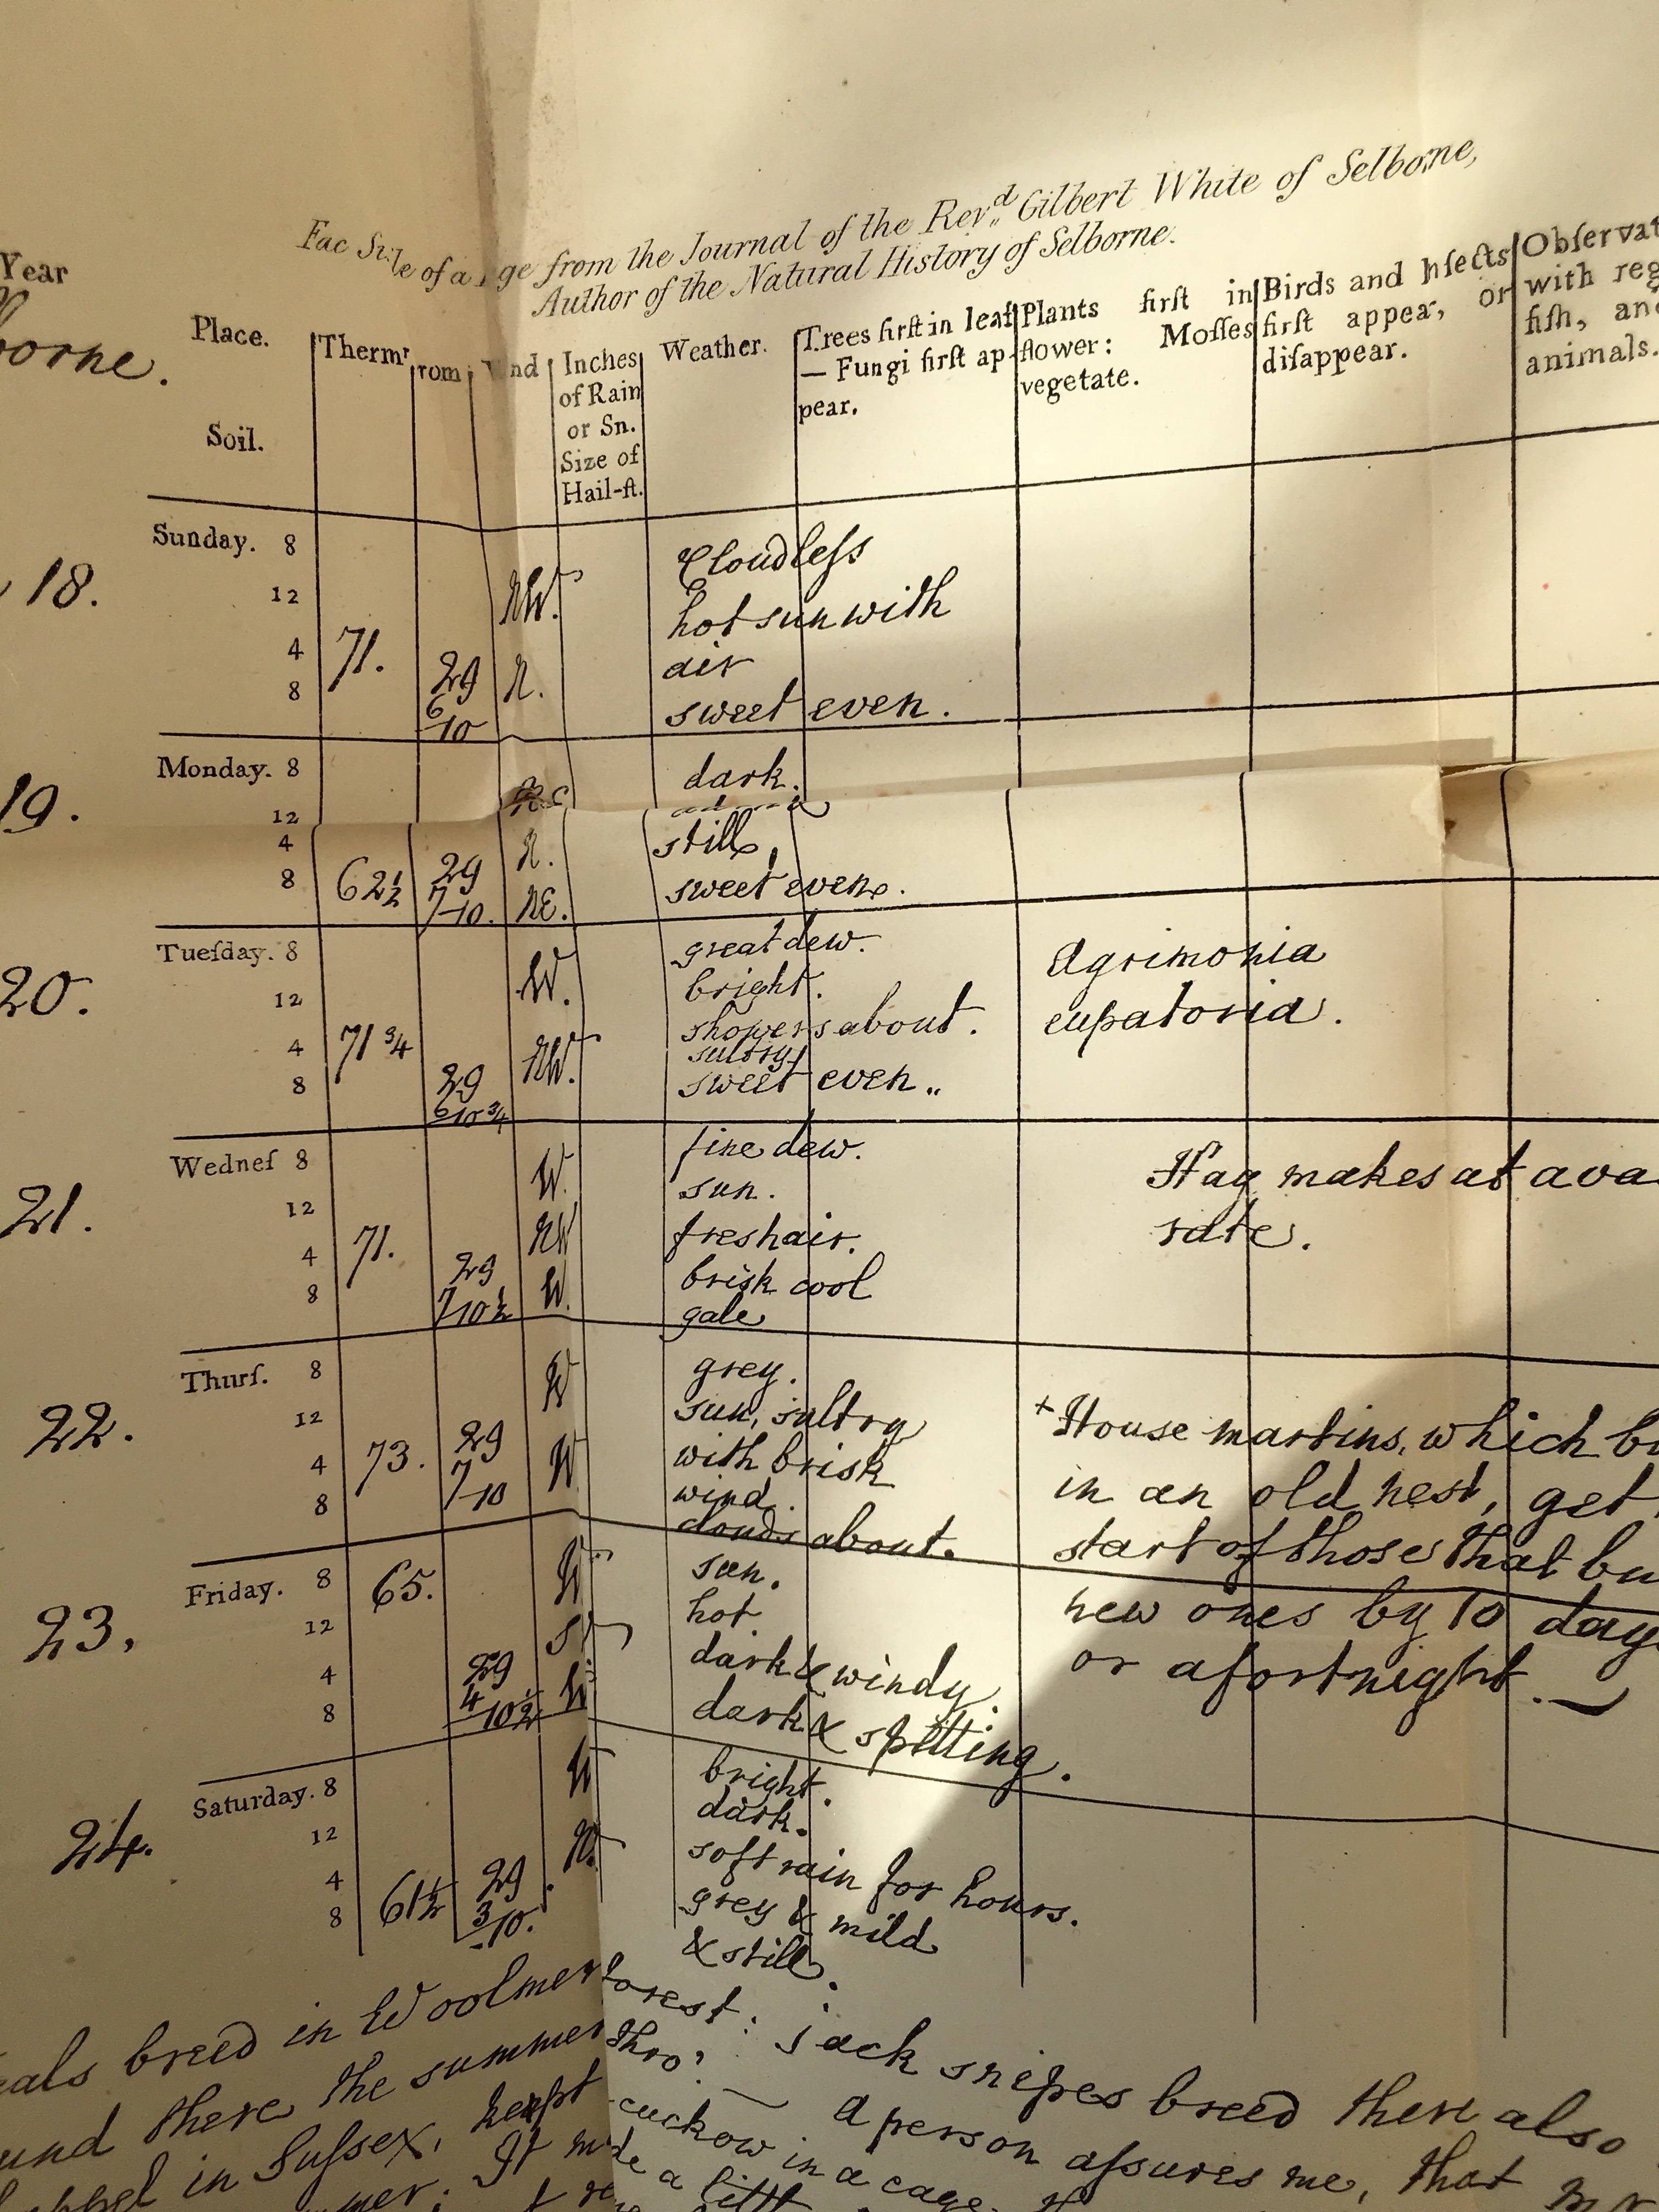 from the Journal of the Rev.d Gilbert White of Selborne,
Author of the Natural History of Selborne.
Year
Place.
Soil.
Therm.r
Inches of Rain or Sn. Size of Hail-ſt.
Weather.
Trees firſt in leaf — Fungi firſt appear.
Plants firſt in flower: Moſſes vegetate.
Birds and Inſects firſt appear, or diſappear.
with
fiſh,
animals.
18.
Sunday. 8
12
4
8
71.
29
6
10
NW.
N.
Cloudleſs
hot sun with
air
sweet even.
19.
Monday. 8
12
4
8
62 1/2
29
7-10.
N.
NE.
dark.
still,
sweet even.
20.
Tueſday. 8
12
4
8
71 3/4
29
6 10 3/4
W.
NW.
great dew.
bright.
showers about.
sultry
sweet even..
Agrimonia
eupatoria.
21.
Wedneſ 8
12
4
8
71.
29
7 10 1/2
W.
NW
W.
fine dew.
sun.
fresh air.
brisk cool
gale
Hay makes at a
rate.
22.
Thurſ. 8
12
4
8
73.
29
7
10
W
W
grey.
sun, sultry
with brisk
wind.
clouds about.
+House martins, which
in an old nest, get
start of those that
new ones by 10
or a fortnight. —
23,
Friday. 8
12
4
8
65.
29
4
10 1/2
W
W
sun.
hot
dark & windy.
dark & spitting.
24.
Saturday. 8
12
4
8
61 1/2
29
3
10.
W
N.
bright.
dark.
soft rain for hours.
grey & mild
& still.
breed in Woolmer forest: jack snipes breed there also
there the summer thro' — A person assures me, that
in Sussex, kept cuckow in a cage
It a